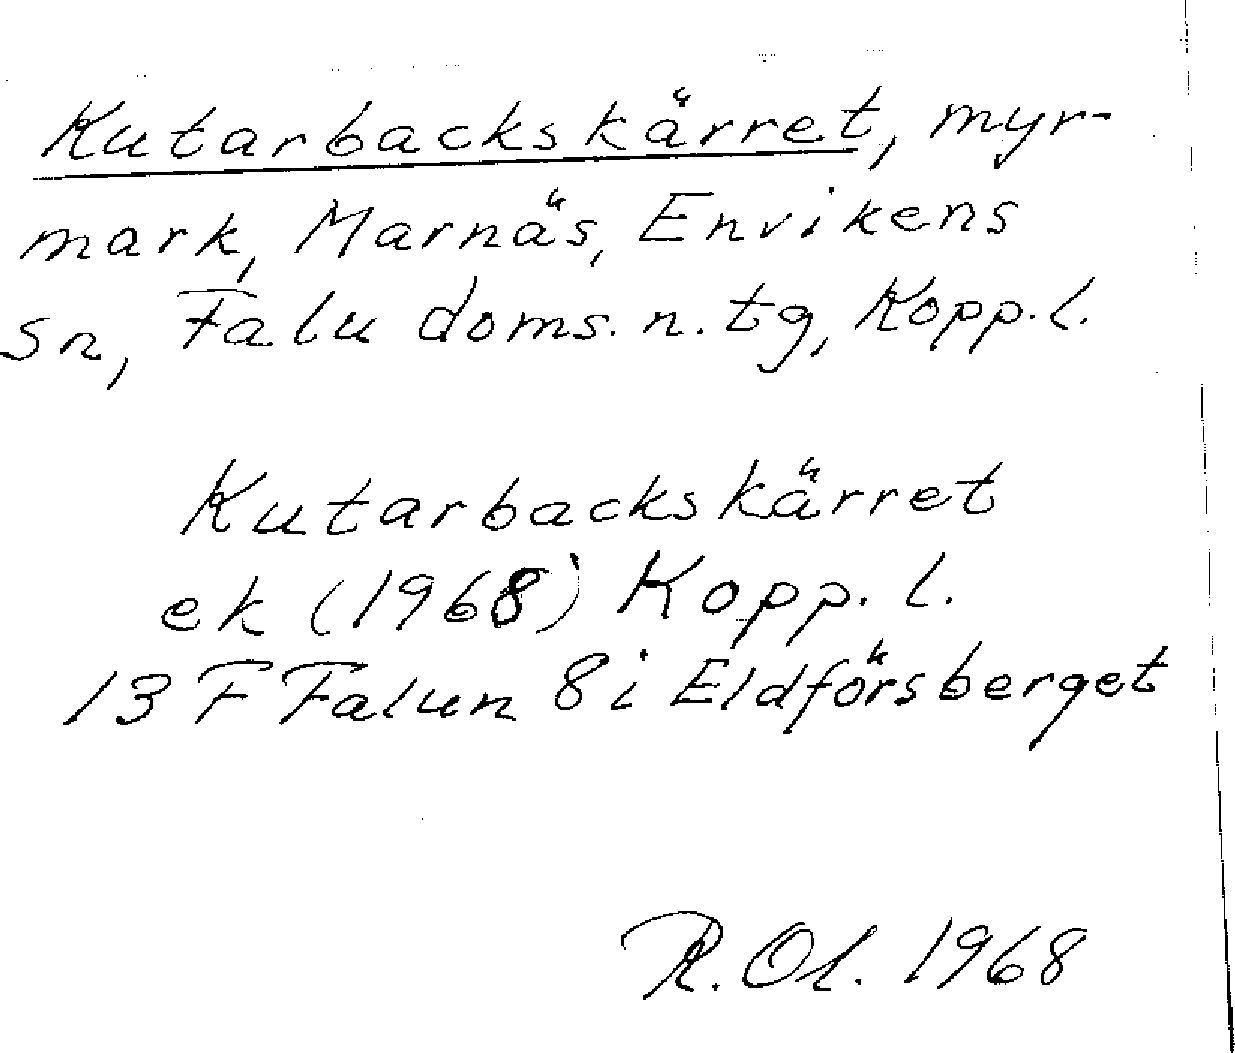 Kutarbackskärret, myr-
mark, Marnäs, Envikens
sn, Falu doms. n. tg, Kopp. l.
Kutarbackskärret
ek (1968) Kopp. l.
13 F Falun 8 i Eldförsberget
R. Ol. 1968